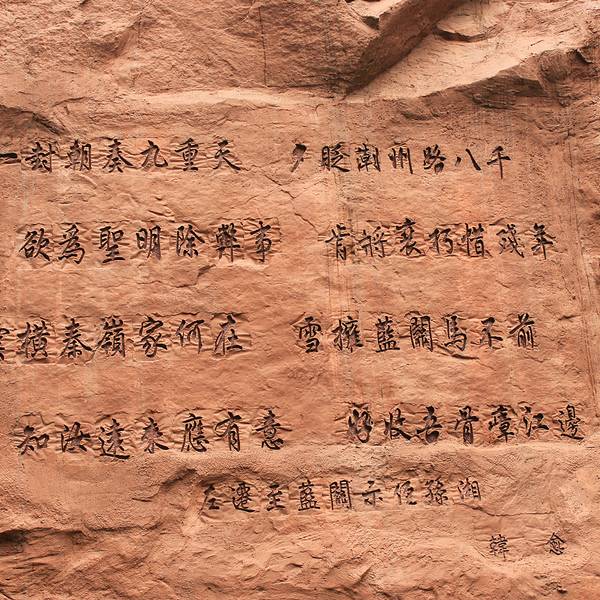 一封朝奏九重天 夕貶潮州路八千
欲為聖明除弊事 肯將衰朽惜殘年
雲橫秦嶺家何在 雪擁藍關馬不前
知汝遠來應有意 好收吾骨瘴江邊
左遷至藍關示侄孫湘
韓愈